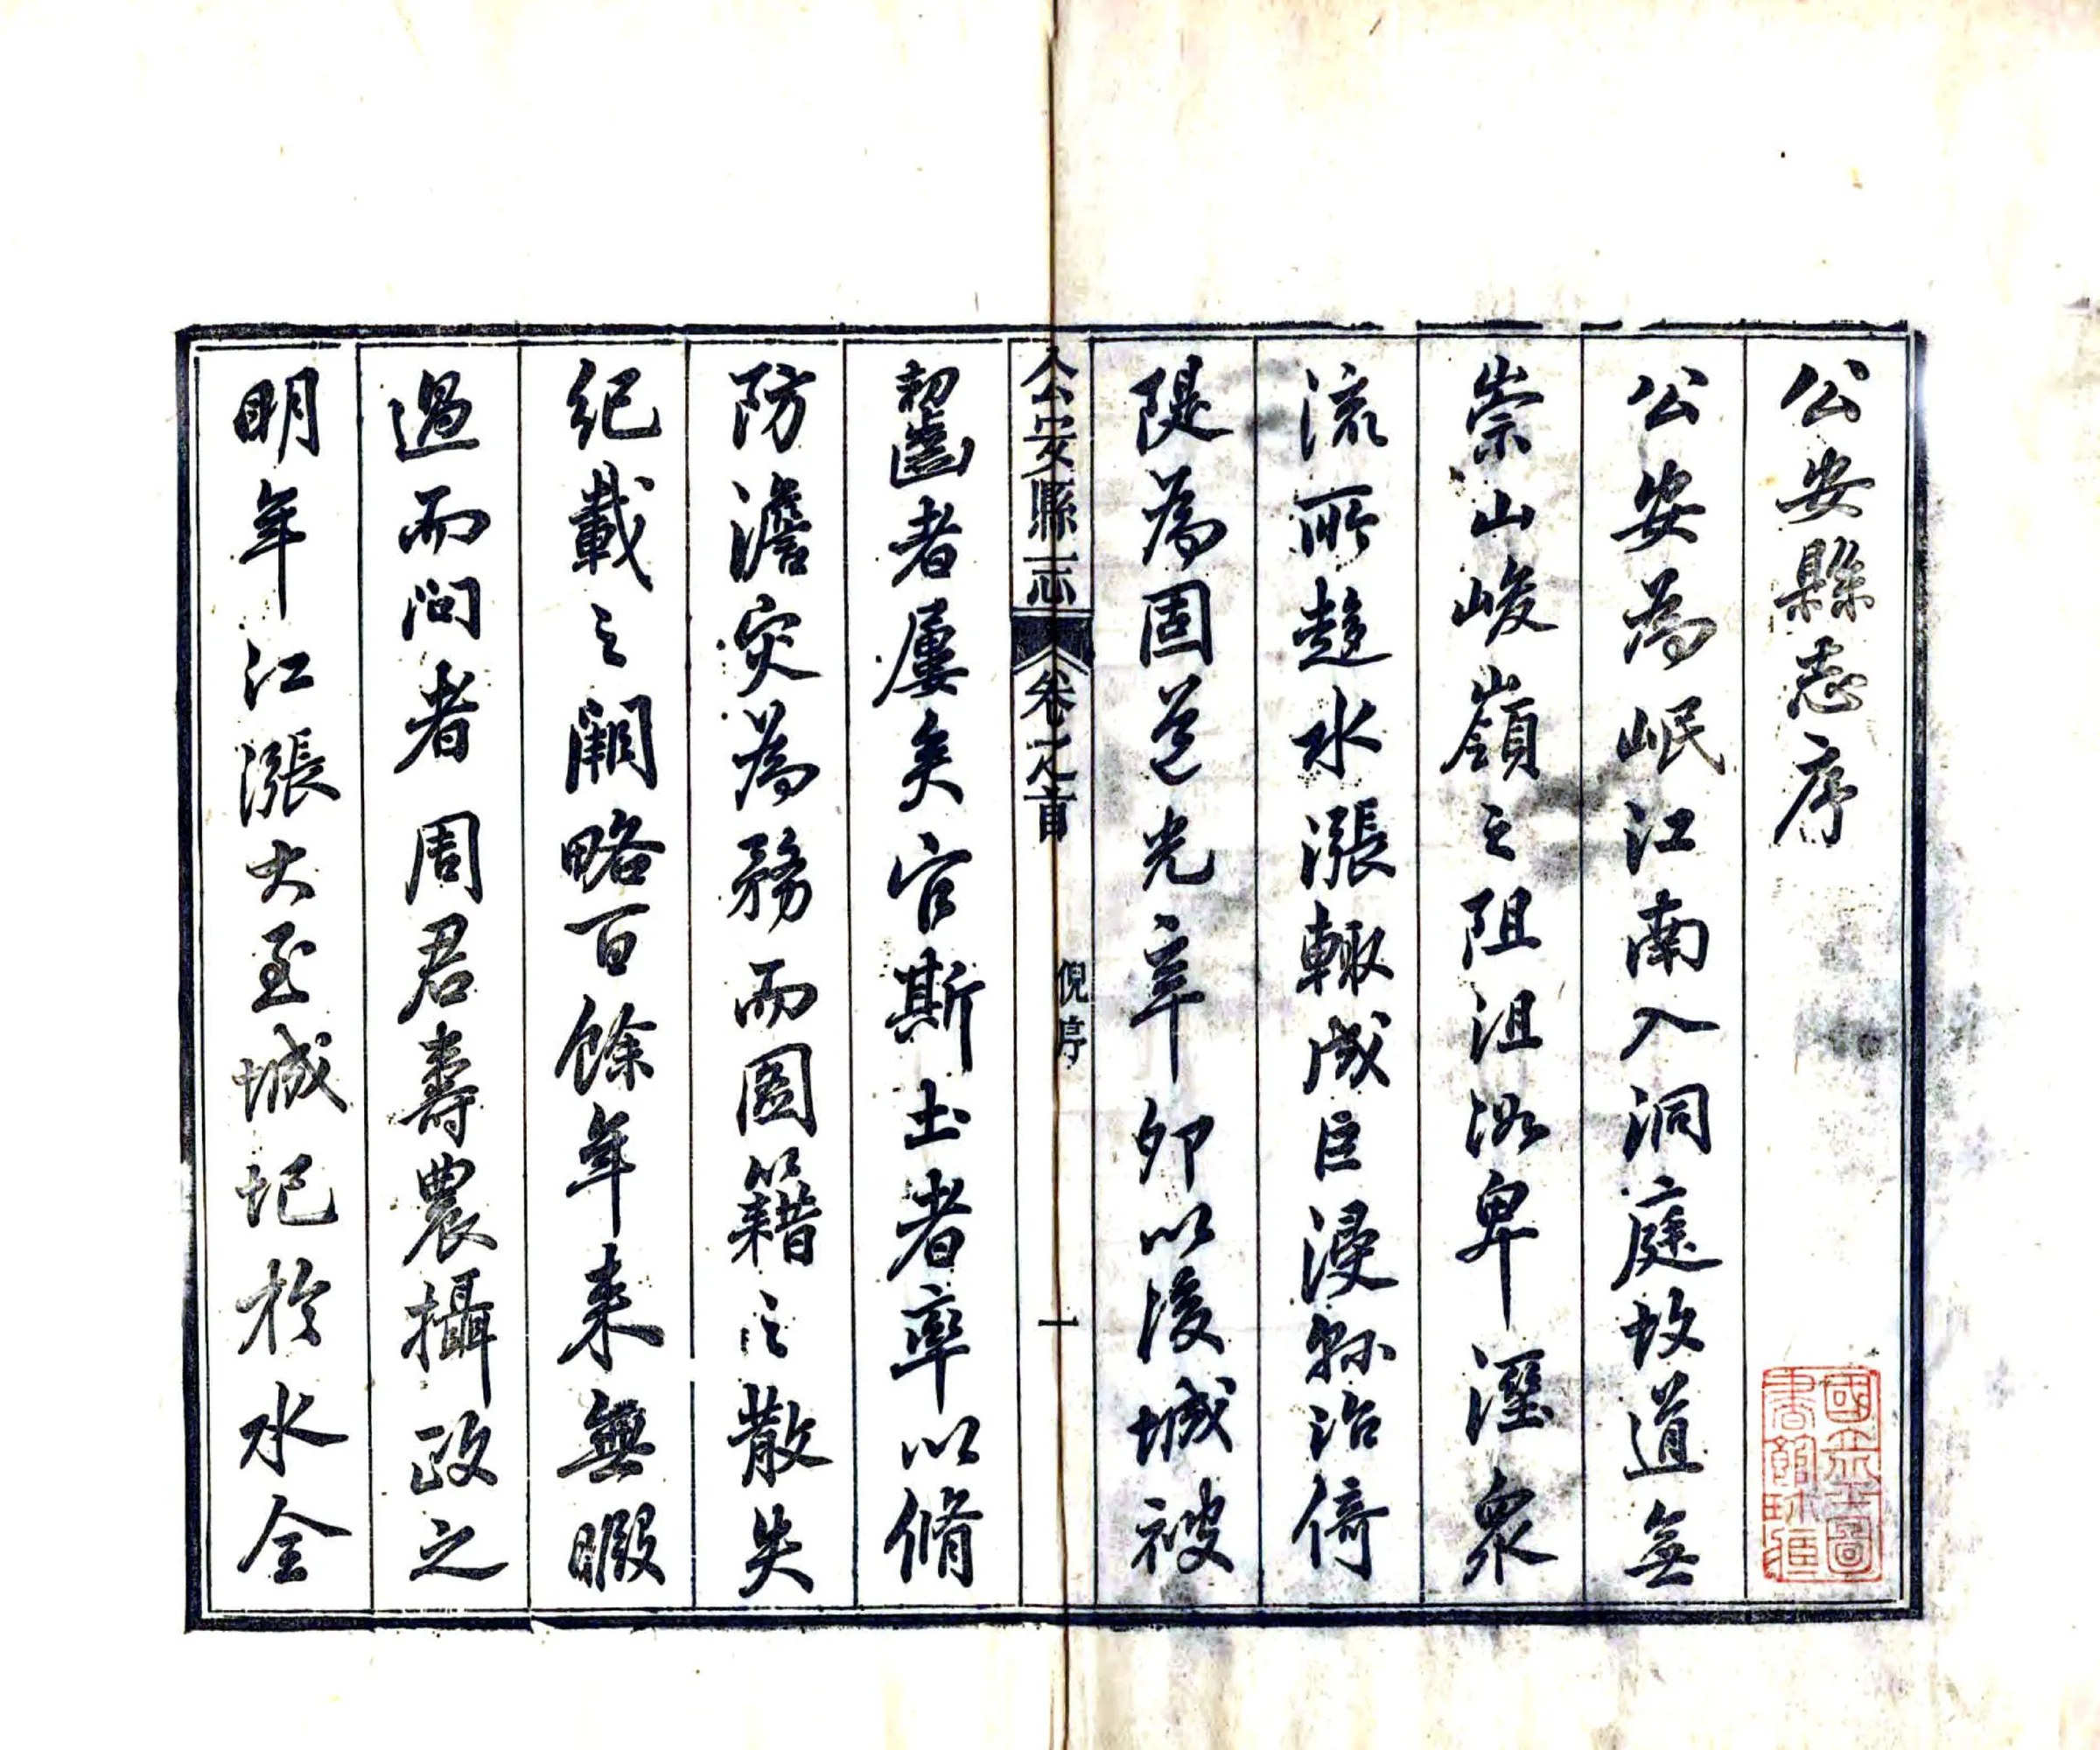 公安縣志序
公安為岷江南入洞庭故道無
崇山峻嶺之阻沮洳卑溼衆
流所趨水漲輒成巨浸縣治倚
隄為固道光辛卯以後城被
公安縣志 卷之首 倪序 一
齧者屢矣官斯土者率以脩
防澹灾為務而圖籍之散失
紀載之闕略百餘年来無暇
過而問者周君壽農攝政之
明年江漲大至城圮於水全
國立北平圖
書館珍藏